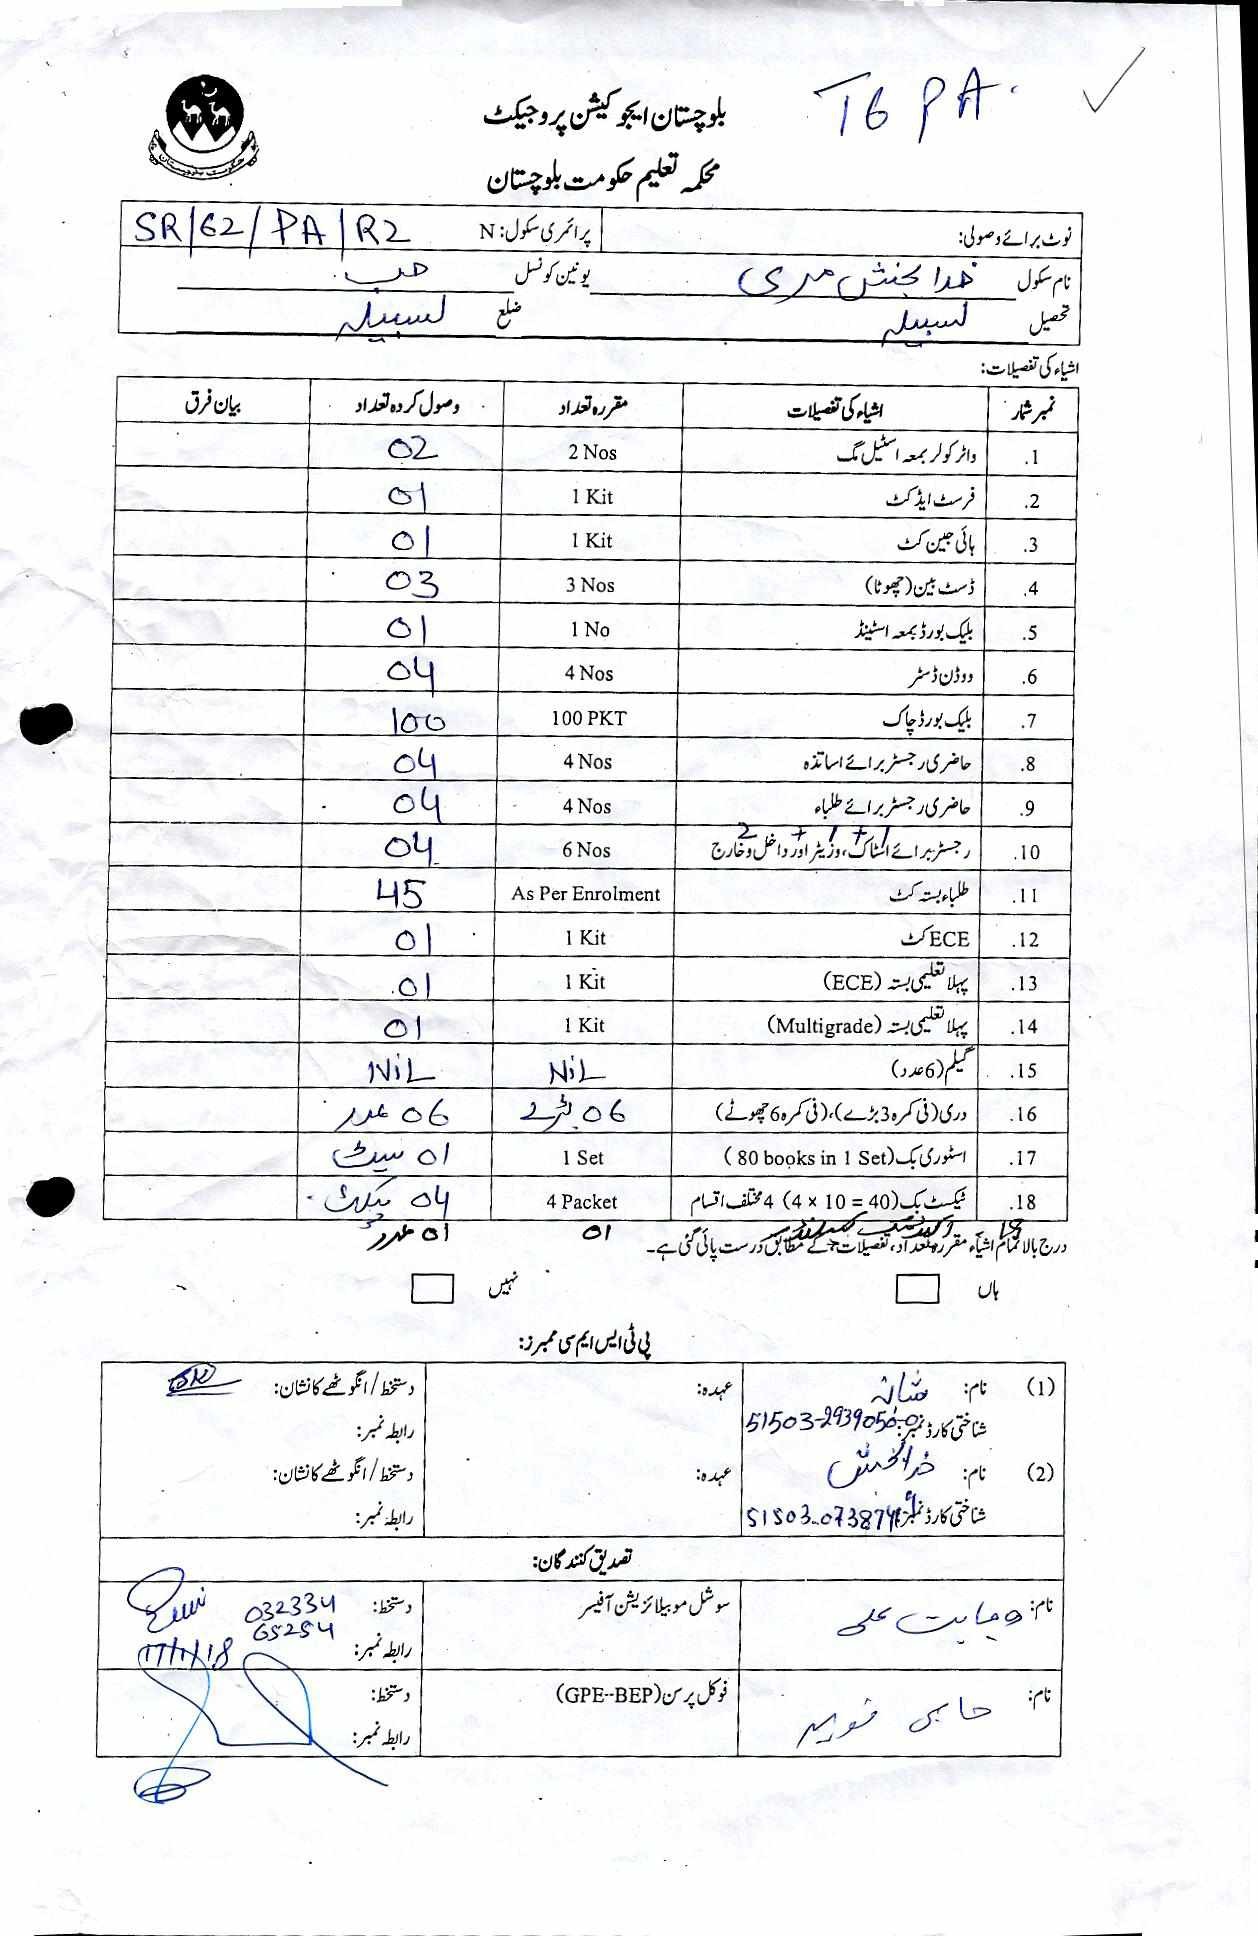 T6 PA.
بلوچستان ایجوکیشن پروجیکٹ
محکمہ تعلیم حکومت بلوچستان
نوٹ برائے وصولی: پرائمری سکول: N SR/62/PA/R2
نام سکول خدا بخش مری یونین کونسل حب
تحصیل لسبیلہ ضلع لسبیلہ
اشیاء کی تفصیلات:
نمبر شمار اشیاء کی تفصیلات مقررہ تعداد وصول کردہ تعداد بیان فرق
1. واٹر کولر بمعہ اسٹیل مگ 2 Nos 02
2. فرسٹ ایڈ کٹ 1 Kit 01
3. ہائی جین کٹ 1 Kit 01
4. ڈسٹ بین (چھوٹا) 3 Nos 03
5. بلیک بورڈ بمعہ اسٹینڈ 1 No 01
6. ووڈن ڈسٹر 4 Nos 04
7. بلیک بورڈ چاک 100 PKT 100
8. حاضری رجسٹر برائے اساتذہ 4 Nos 04
9. حاضری رجسٹر برائے طلباء 4 Nos 04
2 + 1 + 1
10. رجسٹر برائے اسٹاک، وزیٹر اور داخل و خارج 6 Nos 04
11. طلباء بستہ کٹ As Per Enrolment 45
12. ECE کٹ 1 Kit 01
13. پہلا تعلیمی بستہ (ECE) 1 Kit 01
14. پہلا تعلیمی بستہ (Multigrade) 1 Kit 01
15. گیلم (6 عدد) NiL NiL
16. دری (فی کمرہ 3 بڑے)، (فی کمرہ 6 چھوٹے) 06 بڑے 06 عدد
17. اسٹوری بک (80 books in 1 Set) 1 Set 01 سیٹ
18. ٹیکسٹ بک (4 × 10 = 40) 4 مختلف اقسام 4 Packet 04 پیکٹ
19 01 01 عدد
درج بالا تمام اشیاء مقررہ تعداد، تفصیلات کے مطابق درست پائی گئی ہے۔
ہاں نہیں
پی ٹی ایس ایم سی ممبرز:
(1) نام: شانہ عہدہ: دستخط / انگوٹھے کا نشان:
شناختی کارڈ نمبر: 51503-2939050-0 رابطہ نمبر:
(2) نام: خدا بخش عہدہ: دستخط / انگوٹھے کا نشان:
شناختی کارڈ نمبر: 51503-073874 رابطہ نمبر:
تصدیق کنندگان:
نام: وجایت علی سوشل موبیلائزیشن آفیسر دستخط: 032334
65254
رابطہ نمبر: 17/11/18
نام: حاجی فوکل پرسن (GPE--BEP) دستخط:
رابطہ نمبر: